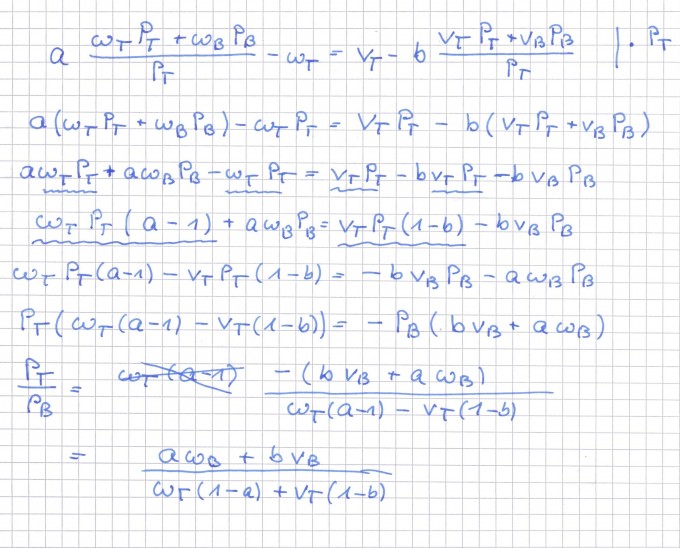 a (ω_T P_T + ω_B P_B)/P_T - ω_T = v_T - b (v_T P_T + v_B P_B)/P_T | · P_T
a(ω_T P_T + ω_B P_B) - ω_T P_T = v_T P_T - b(v_T P_T + v_B P_B)
aω_T P_T + aω_B P_B - ω_T P_T = v_T P_T - bv_T P_T - bv_B P_B
ω_T P_T(a-1) + aω_B P_B = v_T P_T(1-b) - bv_B P_B
ω_T P_T(a-1) - v_T P_T(1-b) = -bv_B P_B - aω_B P_B
P_T(ω_T(a-1) - v_T(1-b)) = -P_B(bv_B + aω_B)
P_T/P_B = ω_T(a-1) -(bv_B + aω_B)/(ω_T(a-1) - v_T(1-b))
= (aω_B + bv_B)/(ω_T(1-a) + v_T(1-b))